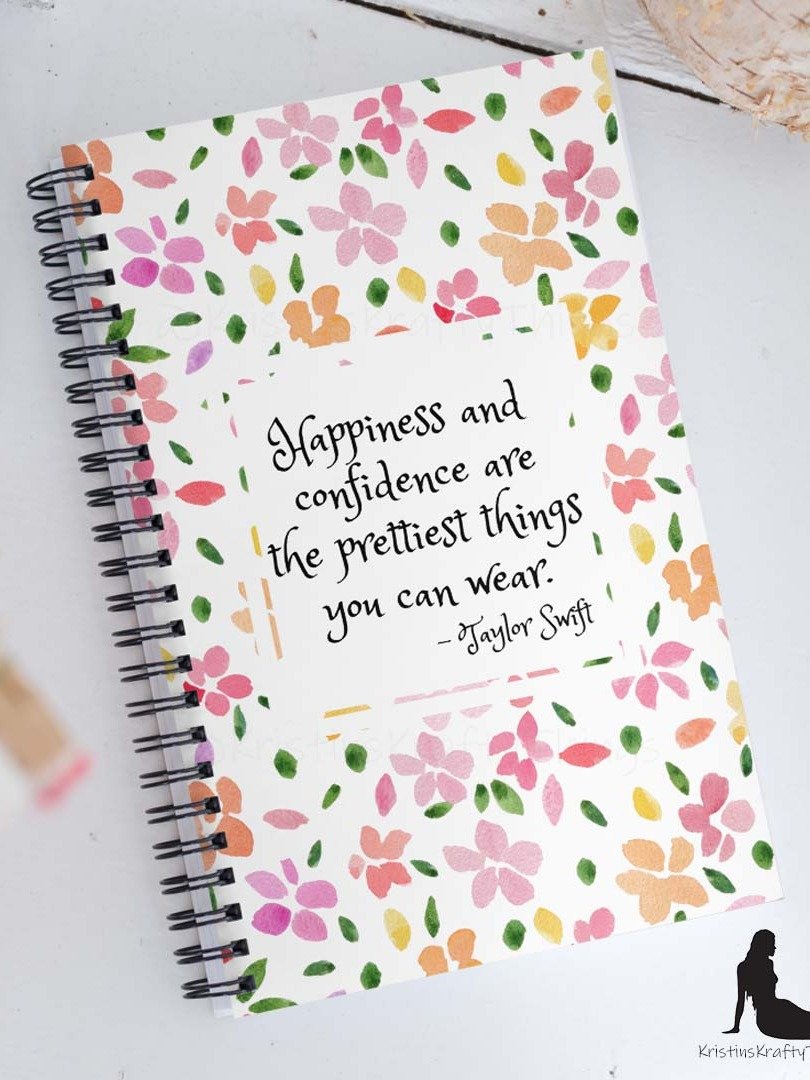 Happiness and
confidence are
the prettiest things
you can wear.
– Taylor Swift
KristinsKrafty